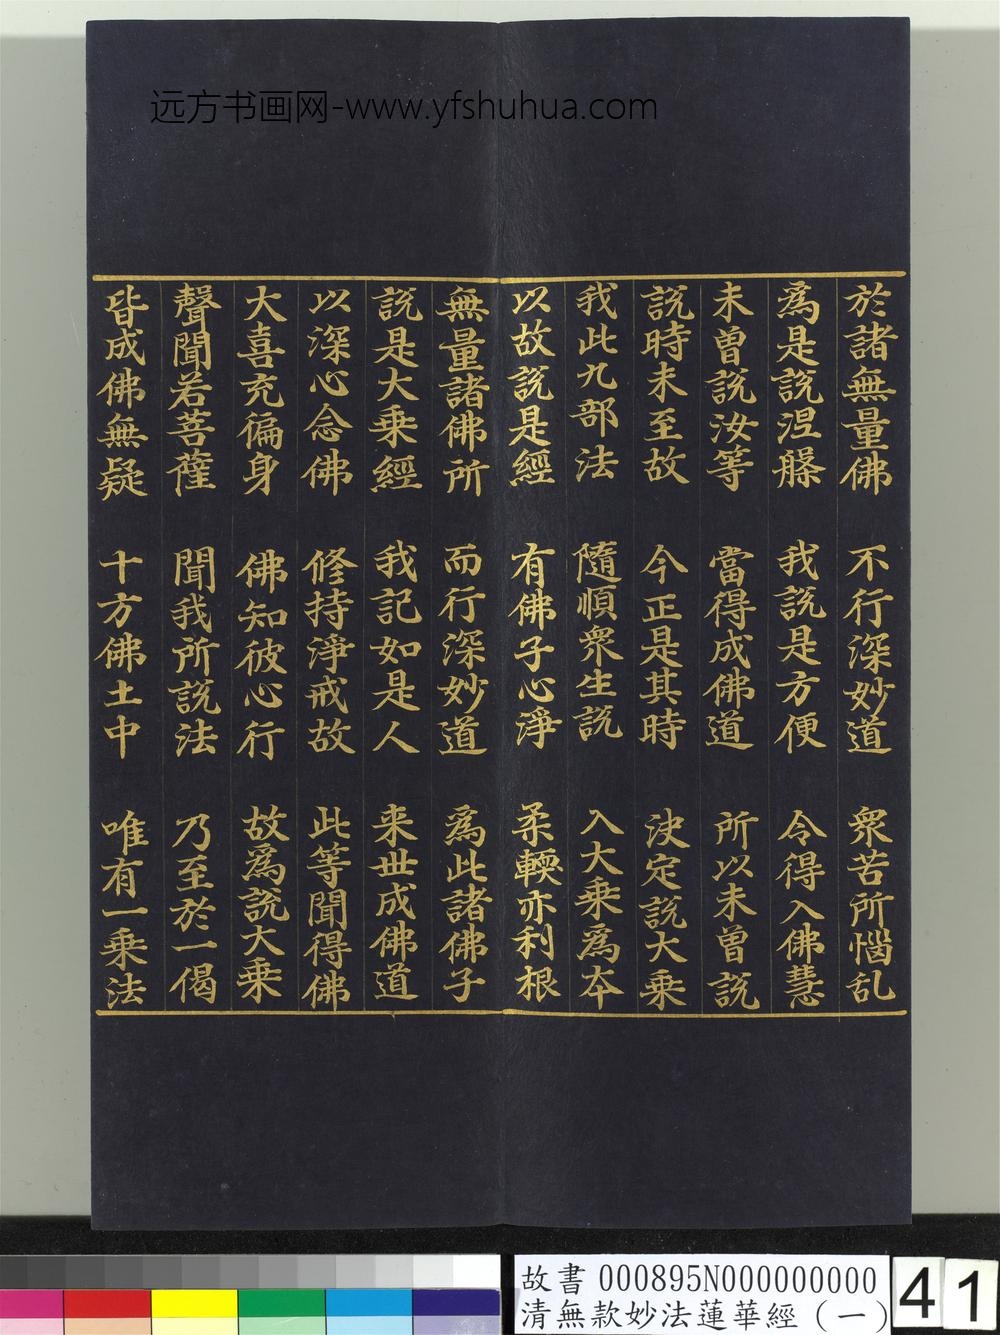 远方书画网-www.yfshuhua.com
於諸無量佛 不行深妙道 衆苦所惱乱
爲是説涅槃 我説是方便 令得入佛慧
未曽説汝等 當得成佛道 所以未曽説
説時未至故 今正是其時 决定説大乗
我此九部法 隨順衆生説 入大乗爲本
以故説是經 有佛子心淨 柔輭亦利根
無量諸佛所 而行深妙道 爲此諸佛子
説是大乗經 我記如是人 来世成佛道
以深心念佛 修持淨戒故 此等聞得佛
大喜充徧身 佛知彼心行 故爲説大乗
聲聞若菩薩 聞我所説法 乃至於一偈
皆成佛無疑 十方佛土中 唯有一乗法
故書 000895N000000000
清無款妙法蓮華經(一)
41